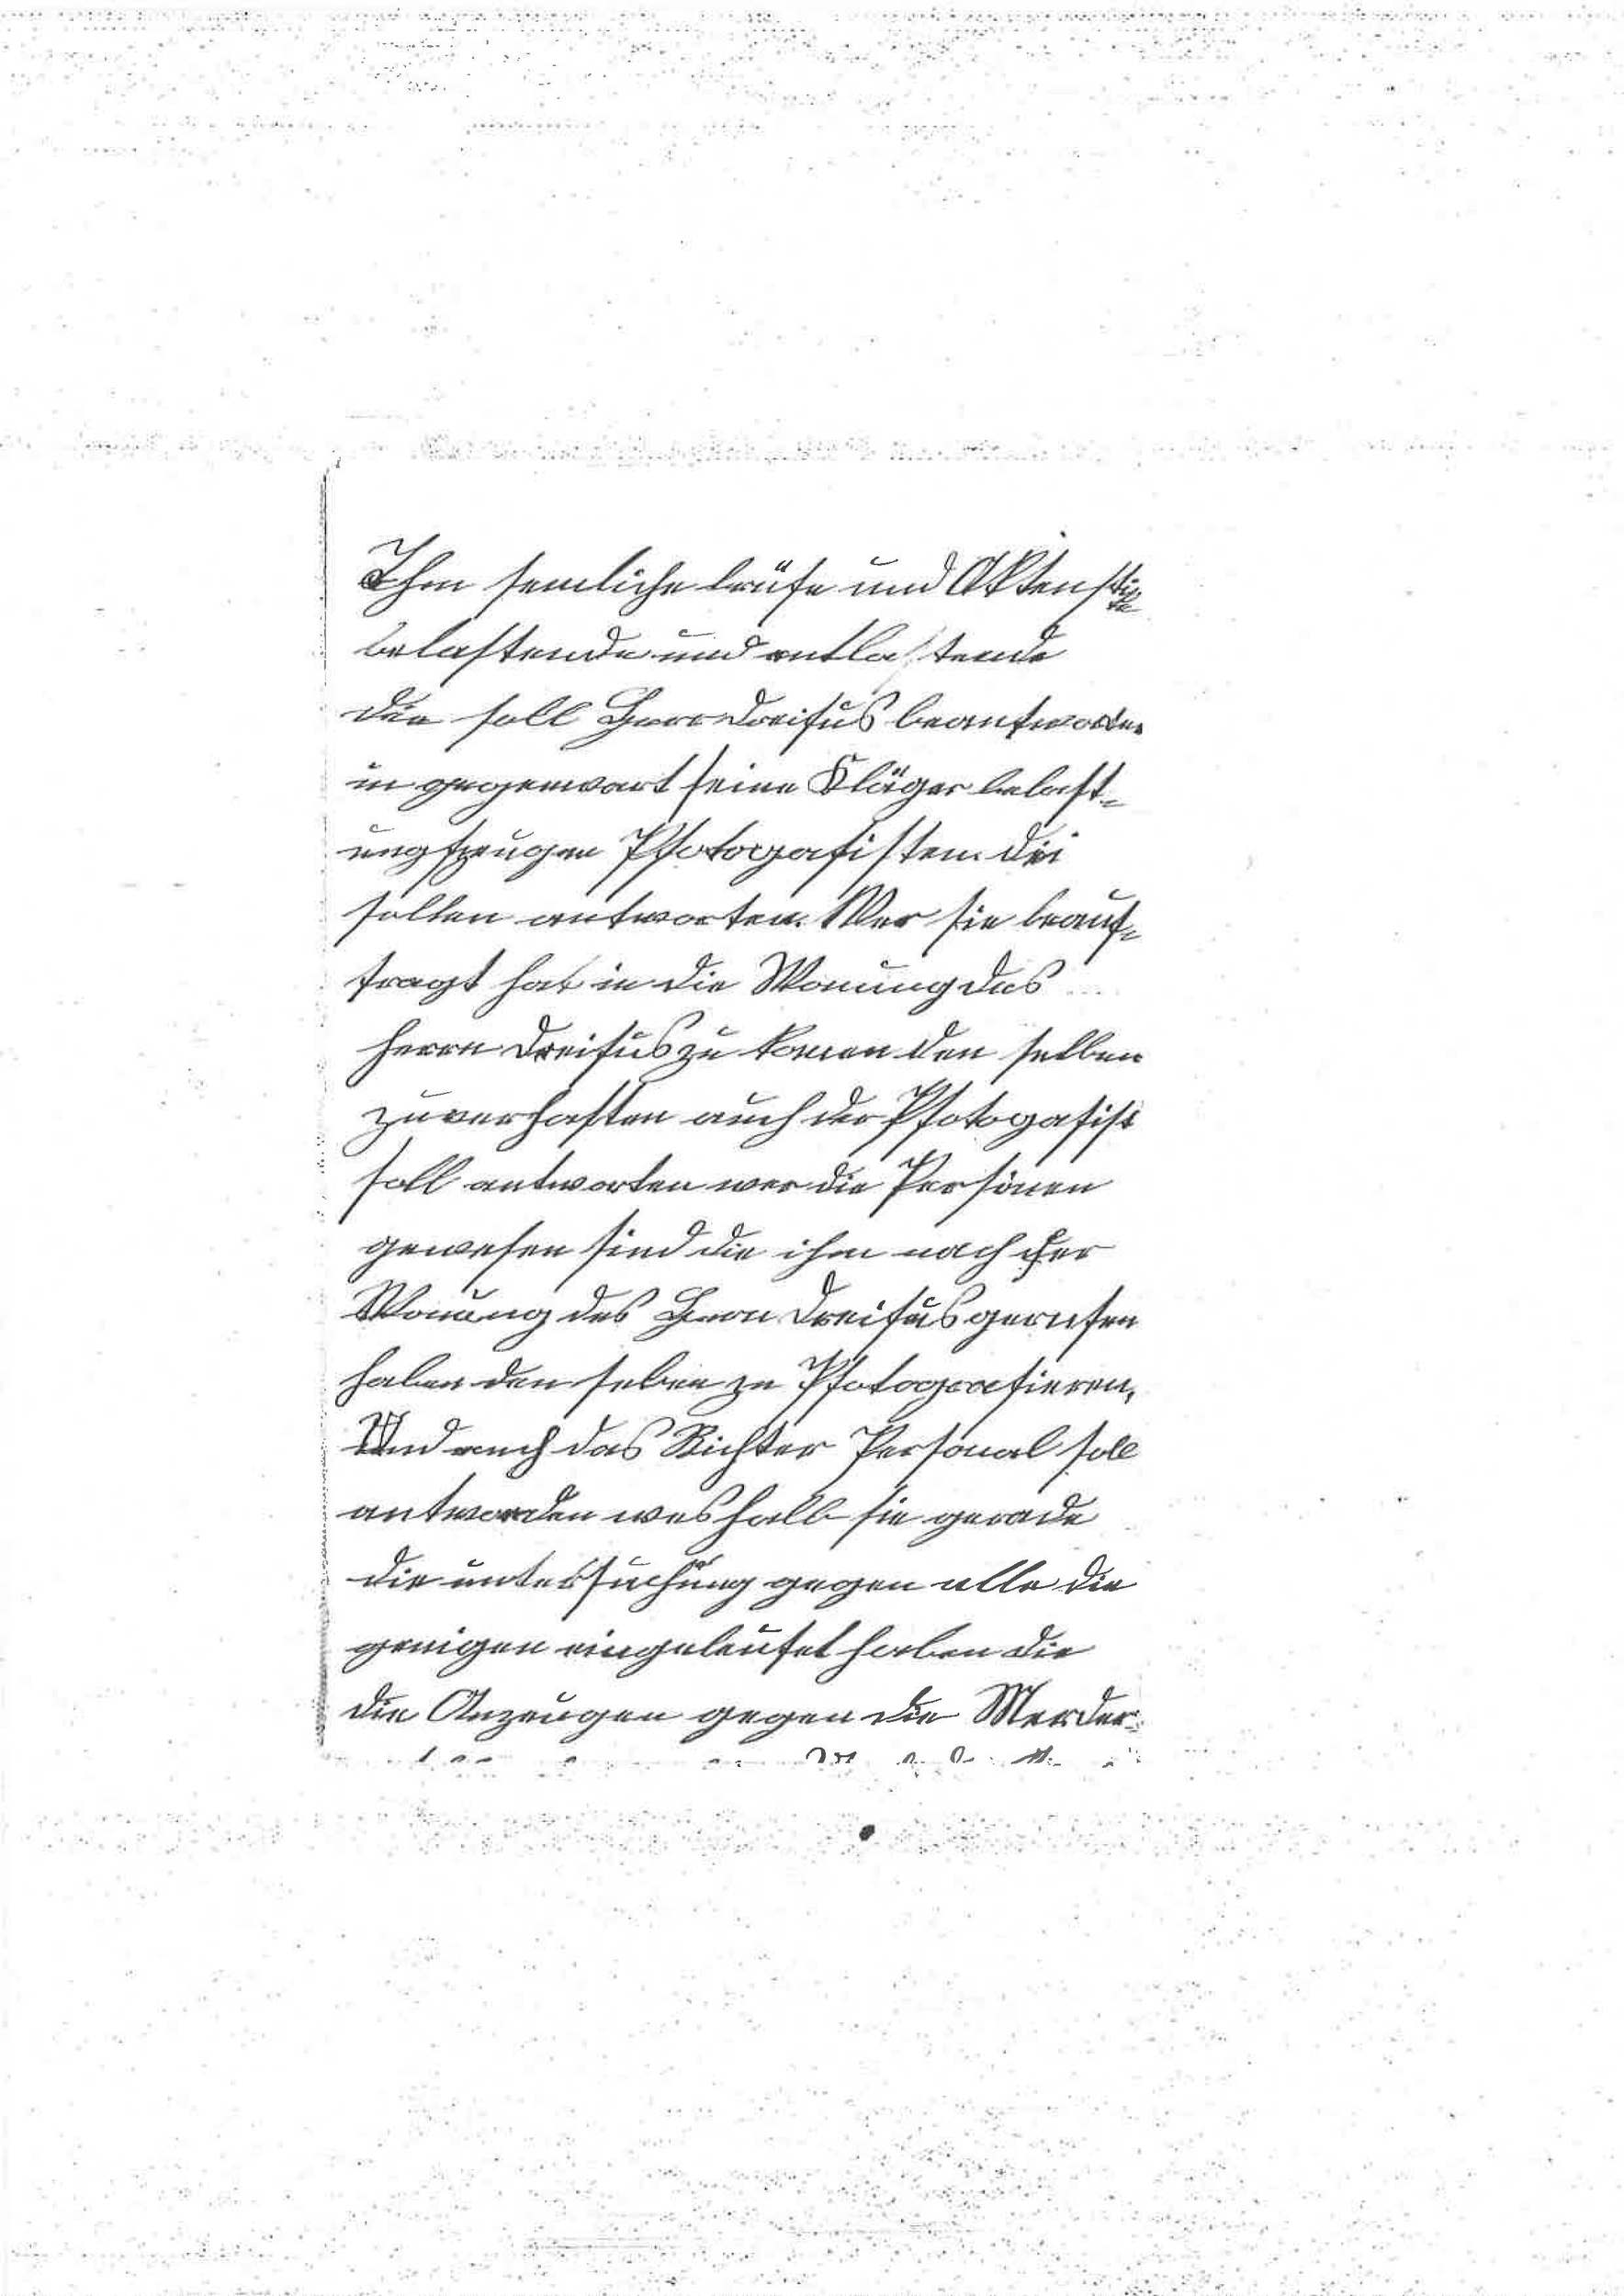 Ihm semliche brüfe und Aktenstüke
belastende und entlastende
die soll Herr Dreifus beantworten
in gegenwart seine Kläger belast-
ungszeugen Pfotogafisten. die
sollen antworten. Wer sie beauf-
tragt hat in die Wonung des
Herrn Dreifus zu komen den selben
zu verhaften auch der Pfotogafist
soll antworten wer die Persönen
gewesen sind die ihm nach der
Wonung des Herrn Dreifus gerufen
haben den selben zu Pfotografieren,
Und auch das Richter Personal soll
antworden weshalb sie gerade
die untersuchung gegen alle die
genigen eingeleutet haben die
die Anzeugen gegen die Merder